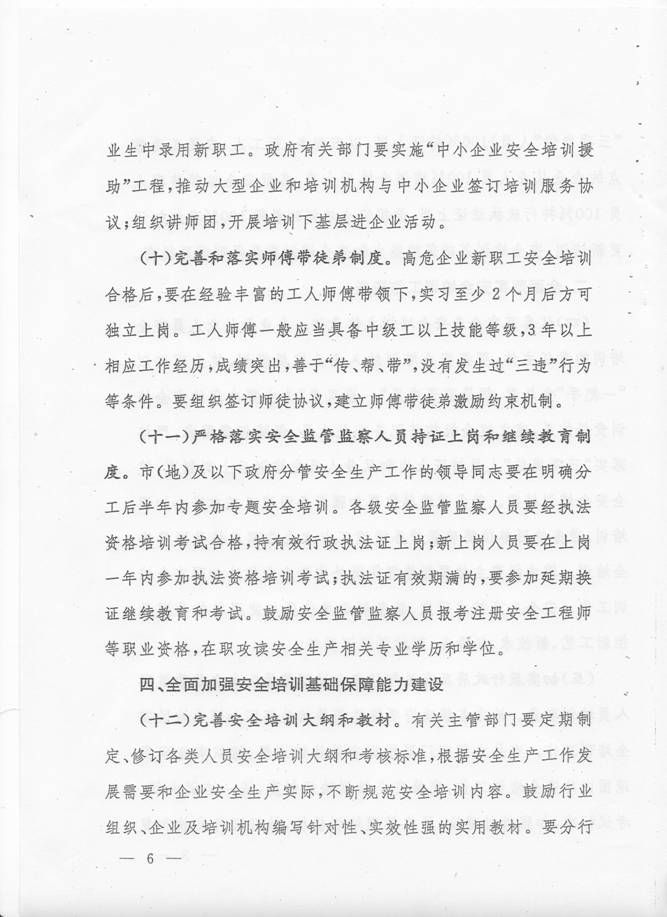 业生中录用新职工。政府有关部门要实施“中小企业安全培训援
助”工程，推动大型企业和培训机构与中小企业签订培训服务协
议；组织讲师团，开展培训下基层进企业活动。
（十）完善和落实师傅带徒弟制度。高危企业新职工安全培训
合格后，要在经验丰富的工人师傅带领下，实习至少2个月后方可
独立上岗。工人师傅一般应当具备中级工以上技能等级，3年以上
相应工作经历，成绩突出，善于“传、帮、带”，没有发生过“三违”行为
等条件。要组织签订师徒协议，建立师傅带徒弟激励约束机制。
（十一）严格落实安全监管监察人员持证上岗和继续教育制
度。市（地）及以下政府分管安全生产工作的领导同志要在明确分
工后半年内参加专题安全培训。各级安全监管监察人员要经执法
资格培训考试合格，持有效行政执法证上岗；新上岗人员要在上岗
一年内参加执法资格培训考试；执法证有效期满的，要参加延期换
证继续教育和考试。鼓励安全监管监察人员报考注册安全工程师
等职业资格，在职攻读安全生产相关专业学历和学位。
四、全面加强安全培训基础保障能力建设
（十二）完善安全培训大纲和教材。有关主管部门要定期制
定、修订各类人员安全培训大纲和考核标准，根据安全生产工作发
展需要和企业安全生产实际，不断规范安全培训内容。鼓励行业
组织、企业及培训机构编写针对性、实效性强的实用教材。要分行
— 6 —